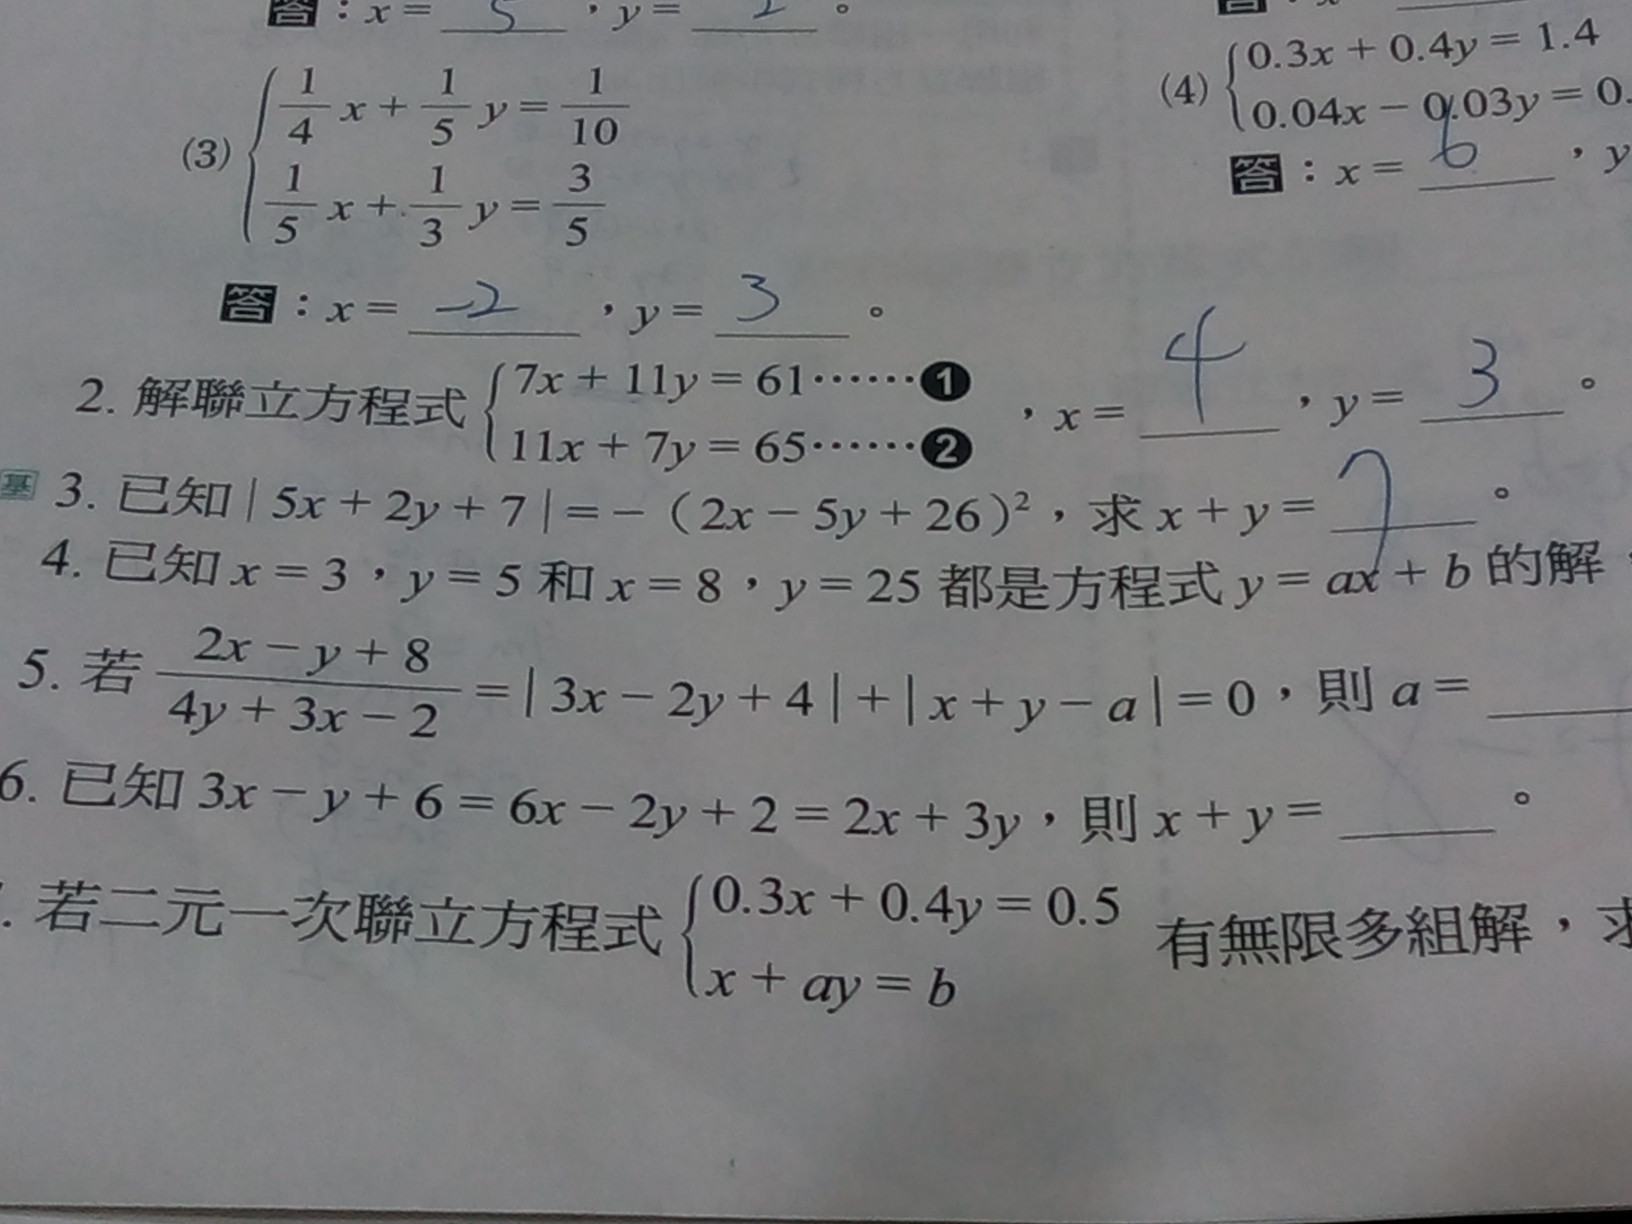 答：x = 5 ，y = 。
(3) { 1/4 x + 1/5 y = 1/10
1/5 x + 1/3 y = 3/5
答：x = -2 ，y = 3 。
(4) { 0.3x + 0.4y = 1.4
0.04x − 0.03y = 0.
答：x = 6 ，y
2. 解聯立方程式 { 7x + 11y = 61⋯⋯❶
11x + 7y = 65⋯⋯❷ ，x = 4 ，y = 3 。
基 3. 已知 | 5x + 2y + 7 | = −（2x − 5y + 26）²，求 x + y = 7 。
4. 已知 x = 3，y = 5 和 x = 8，y = 25 都是方程式 y = ax + b 的解
5. 若 (2x − y + 8)/(4y + 3x − 2) = | 3x − 2y + 4 | + | x + y − a | = 0，則 a =
6. 已知 3x − y + 6 = 6x − 2y + 2 = 2x + 3y，則 x + y = 。
. 若二元一次聯立方程式 { 0.3x + 0.4y = 0.5
x + ay = b 有無限多組解，求